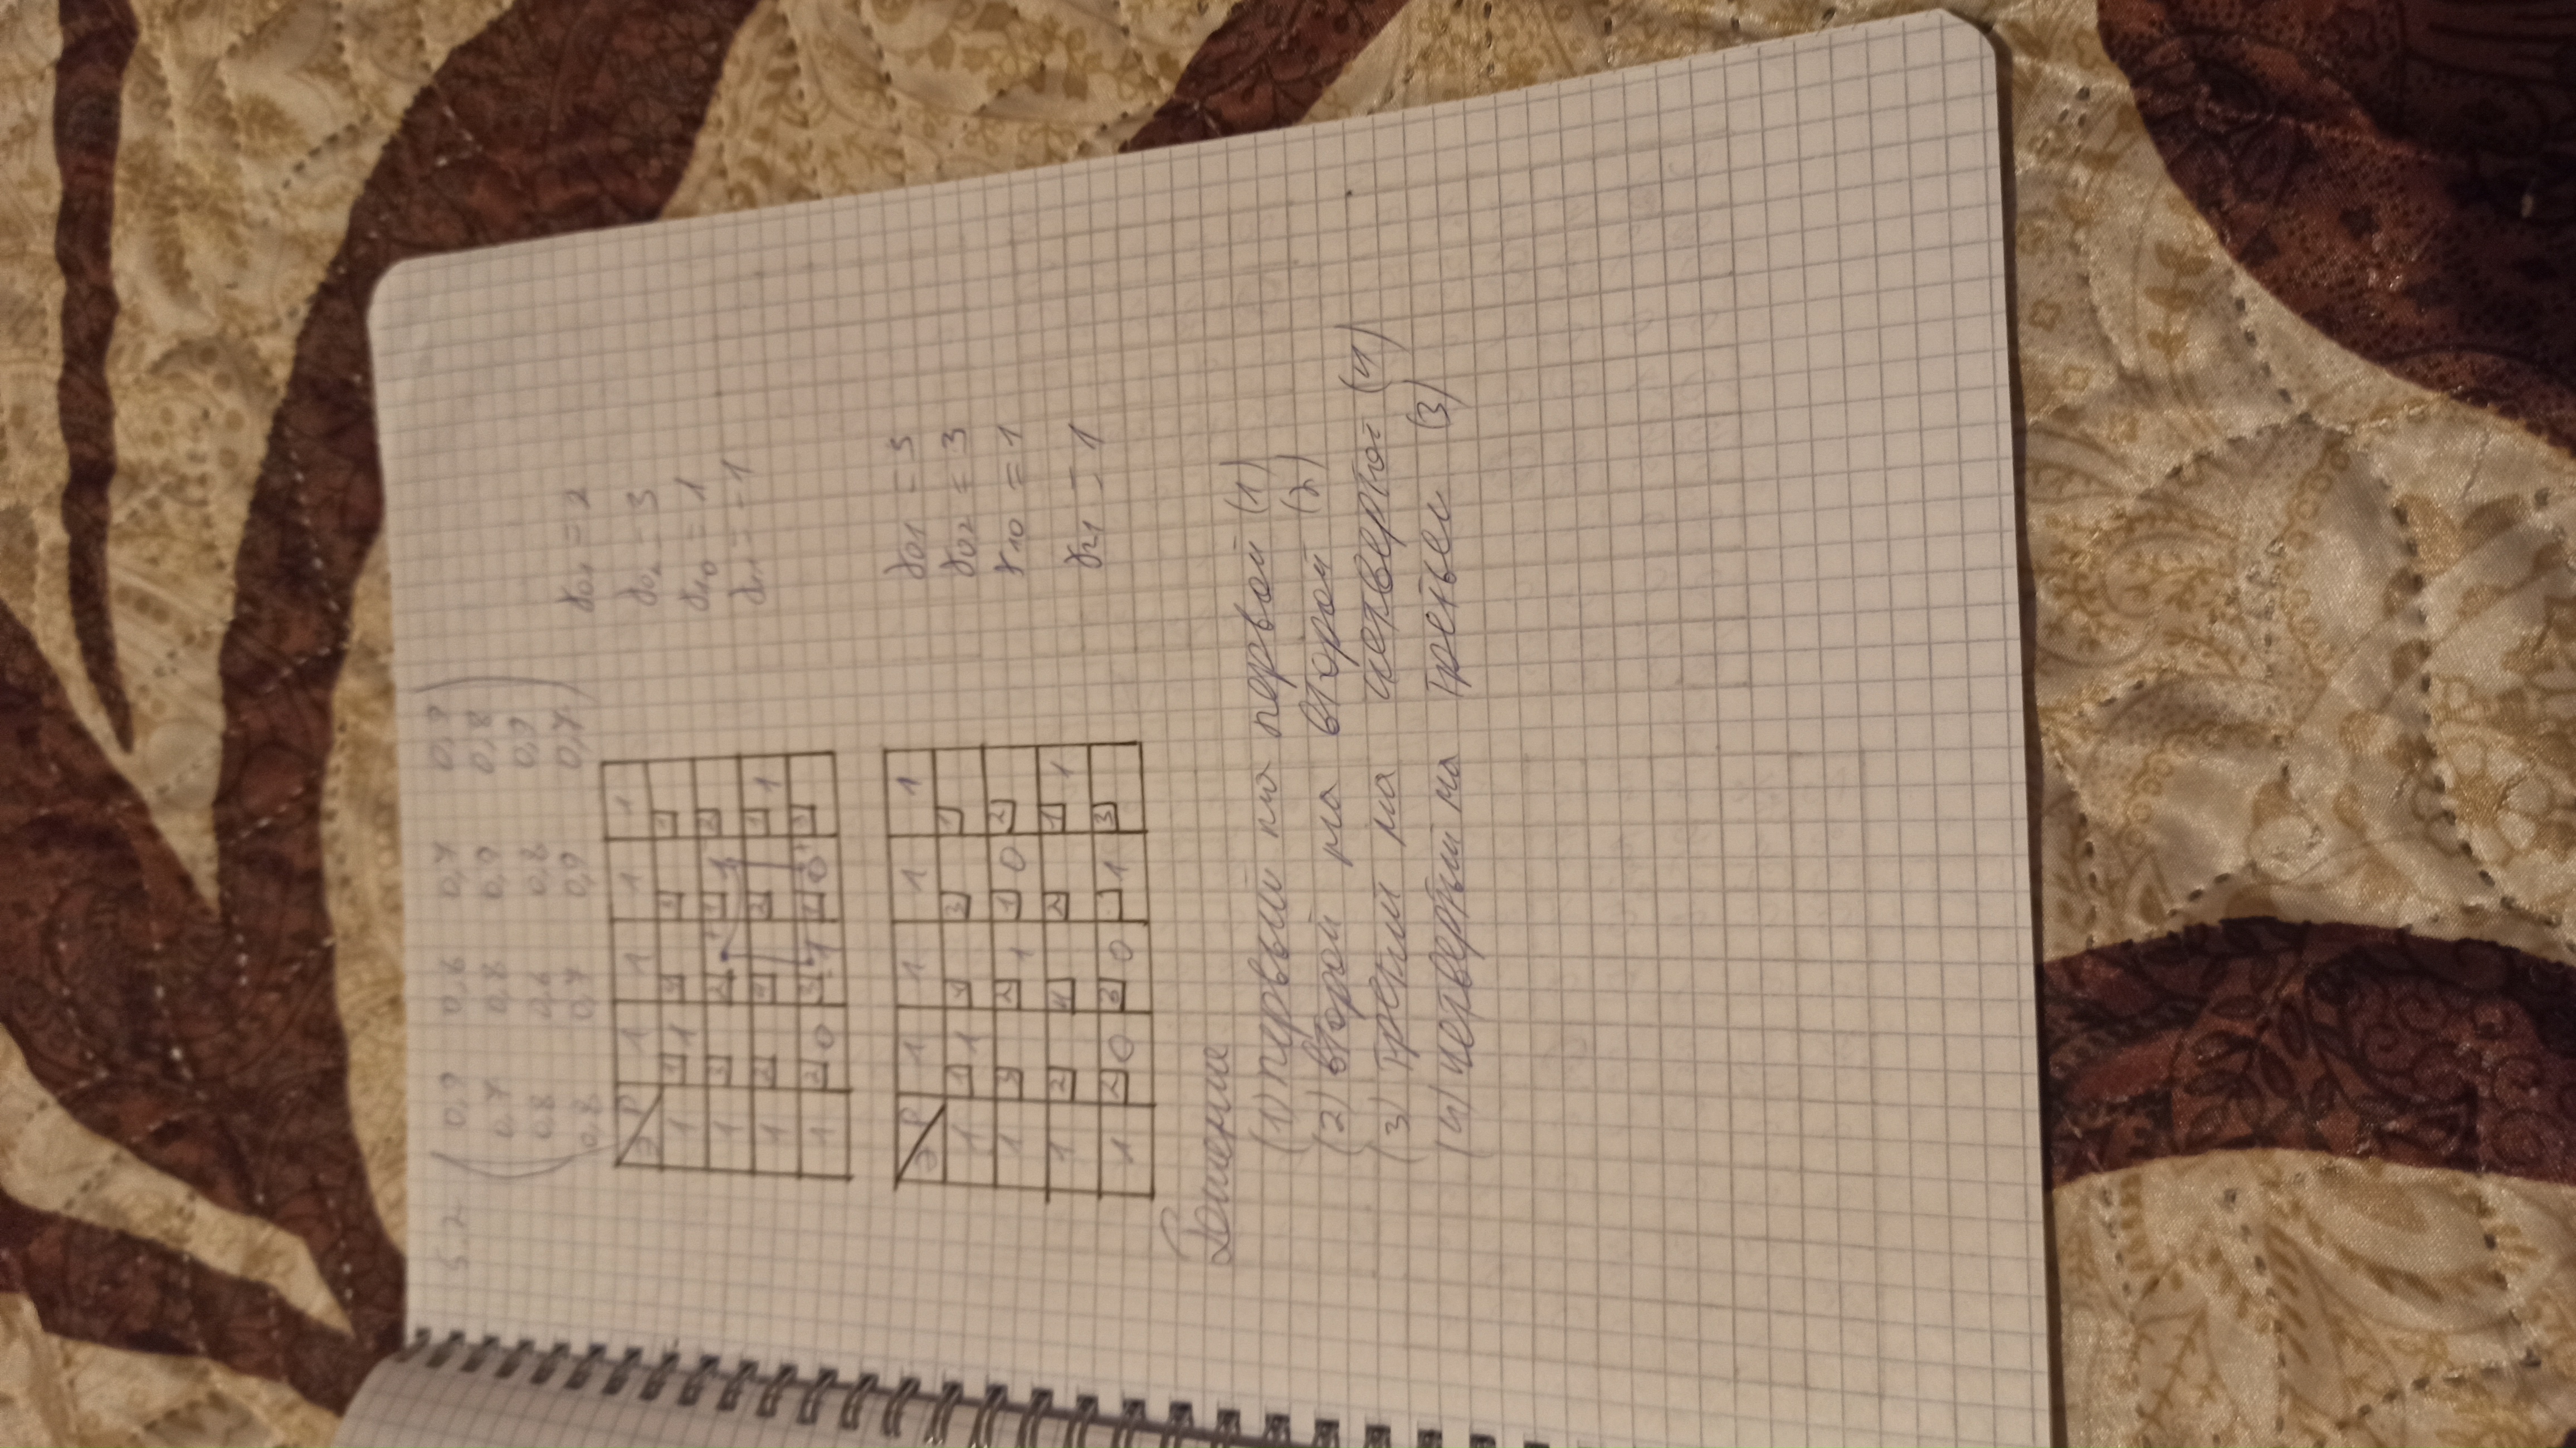 5.2
0,9 0,6 0,7 0,9
0,7 0,8 0,9 0,8
0,8 0,6 0,8 0,9
0,8 0,7 0,9 0,7
P 1 1 1 1
1 1 1 1
1 3 2 + 1 1 2
1 2 4 2 1 1
1 2 0 3 1 1 0 + 3
= 2
= 3
= 1
= -1
P 1 1 1 1
1 1 1 4 3 1
1 3 2 1 1 0 2
1 2 4 2 1 1
1 2 0 3 0 1 3
γ01 =
γ02 = 3
γ10 = 1
= 1
Решение
(1) первый на первой (1)
(2) второй на второй (2)
(3) третий на (4)
(4) четвертый на третьей (3)